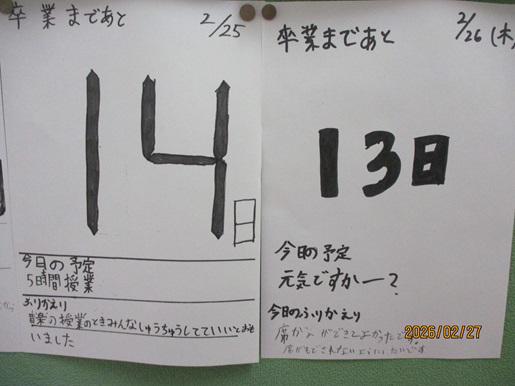 卒業まであと 2/25
14日
今日の予定
5時間授業
ふりかえり
音楽の授業のときみんなしゅうちゅうしてていいとおも
いました
卒業まであと 2/26 (木)
13日
今日の予定
元気ですかー?
今日のふりかえり
席がえができてよかったです。
2026/02/27